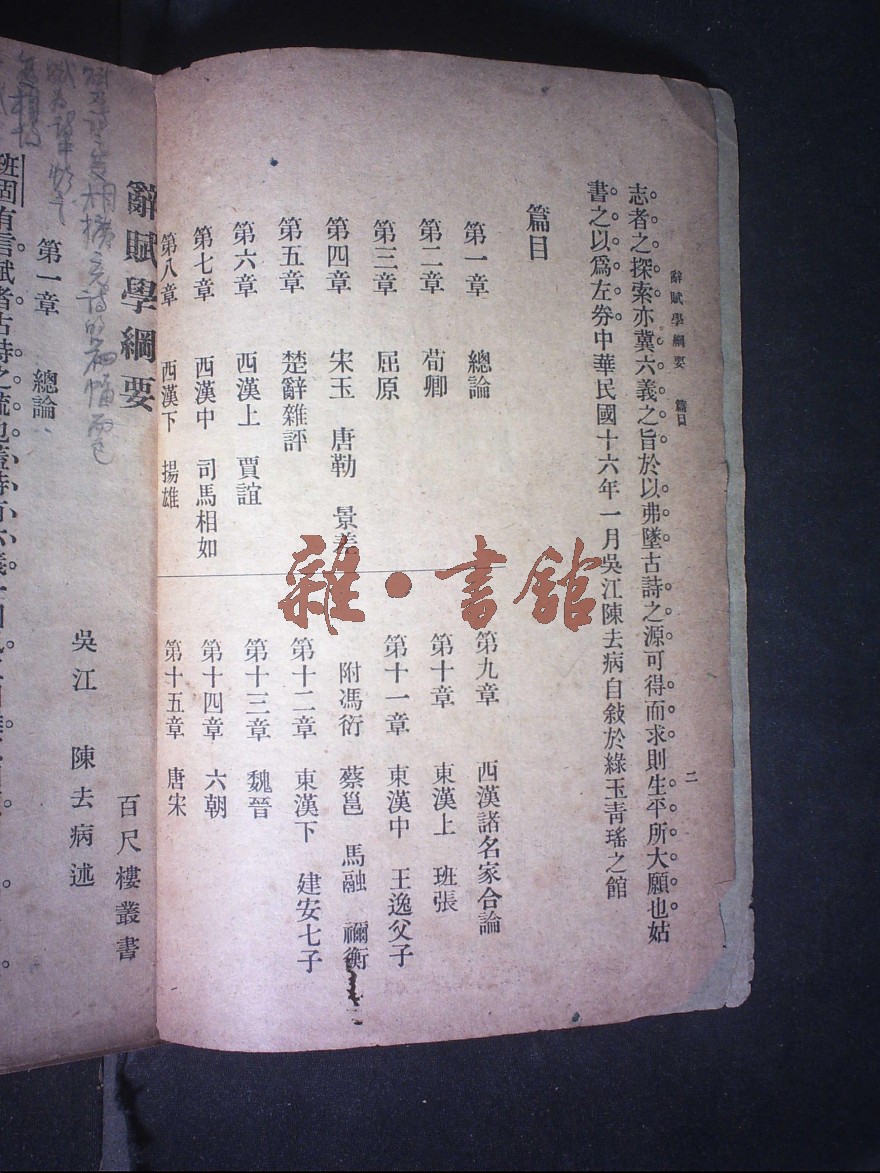 辭賦學綱要 篇目
二
志者之探索亦冀六義之旨於以弗墜古詩之源可得而求則生平所大願也姑
書之以爲左券中華民國十六年一月吳江陳去病自敍於綠玉青瑤之館
篇目
第一章 總論
第二章 荀卿
第三章 屈原
第四章 宋玉 唐勒 景差
第五章 楚辭雜評
第六章 西漢上 賈誼
第七章 西漢中 司馬相如
第八章 西漢下 揚雄
第九章 西漢諸名家合論
第十章 東漢上 班張
第十一章 東漢中 王逸父子
附馮衍 蔡邕 馬融 禰衡
第十二章 東漢下 建安七子
第十三章 魏晉
第十四章 六朝
第十五章 唐宋
雜·書館
辭賦學綱要
百尺樓叢書
吳江 陳去病述
第一章 總論
班固有言賦者古詩之流也蓋詩有六義